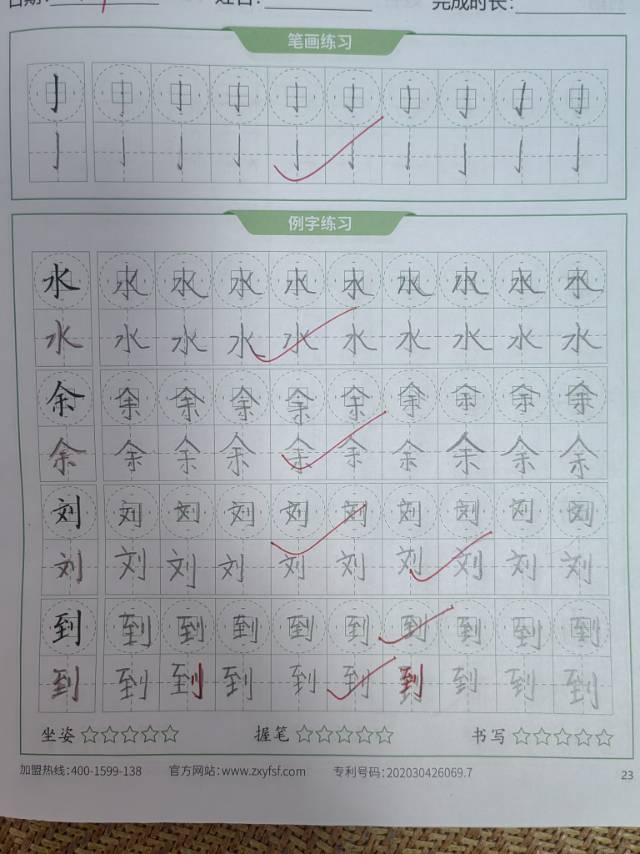 日期：	姓名：	完成时长：
笔画练习
亅 亅 亅 亅 亅 亅 亅 亅 亅 亅
亅 亅 亅 亅 亅 亅 亅 亅 亅 亅
例字练习
水 水 水 水 水 水 水 水 水 水
水 水 水 水 水 水 水 水 水 水
余 余 余 余 余 余 余 余 余 余
余 余 余 余 余 余 余 余 余 余
刘 刘 刘 刘 刘 刘 刘 刘 刘 刘
刘 刘 刘 刘 刘 刘 刘 刘 刘 刘
到 到 到 到 到 到 到 到 到 到
到 到 到 到 到 到 到 到 到 到
坐姿☆☆☆☆☆ 握笔☆☆☆☆☆ 书写☆☆☆☆☆
加盟热线：400-1599-138 官方网站：www.zxyfsf.com 专利号码：202030426069.7 23